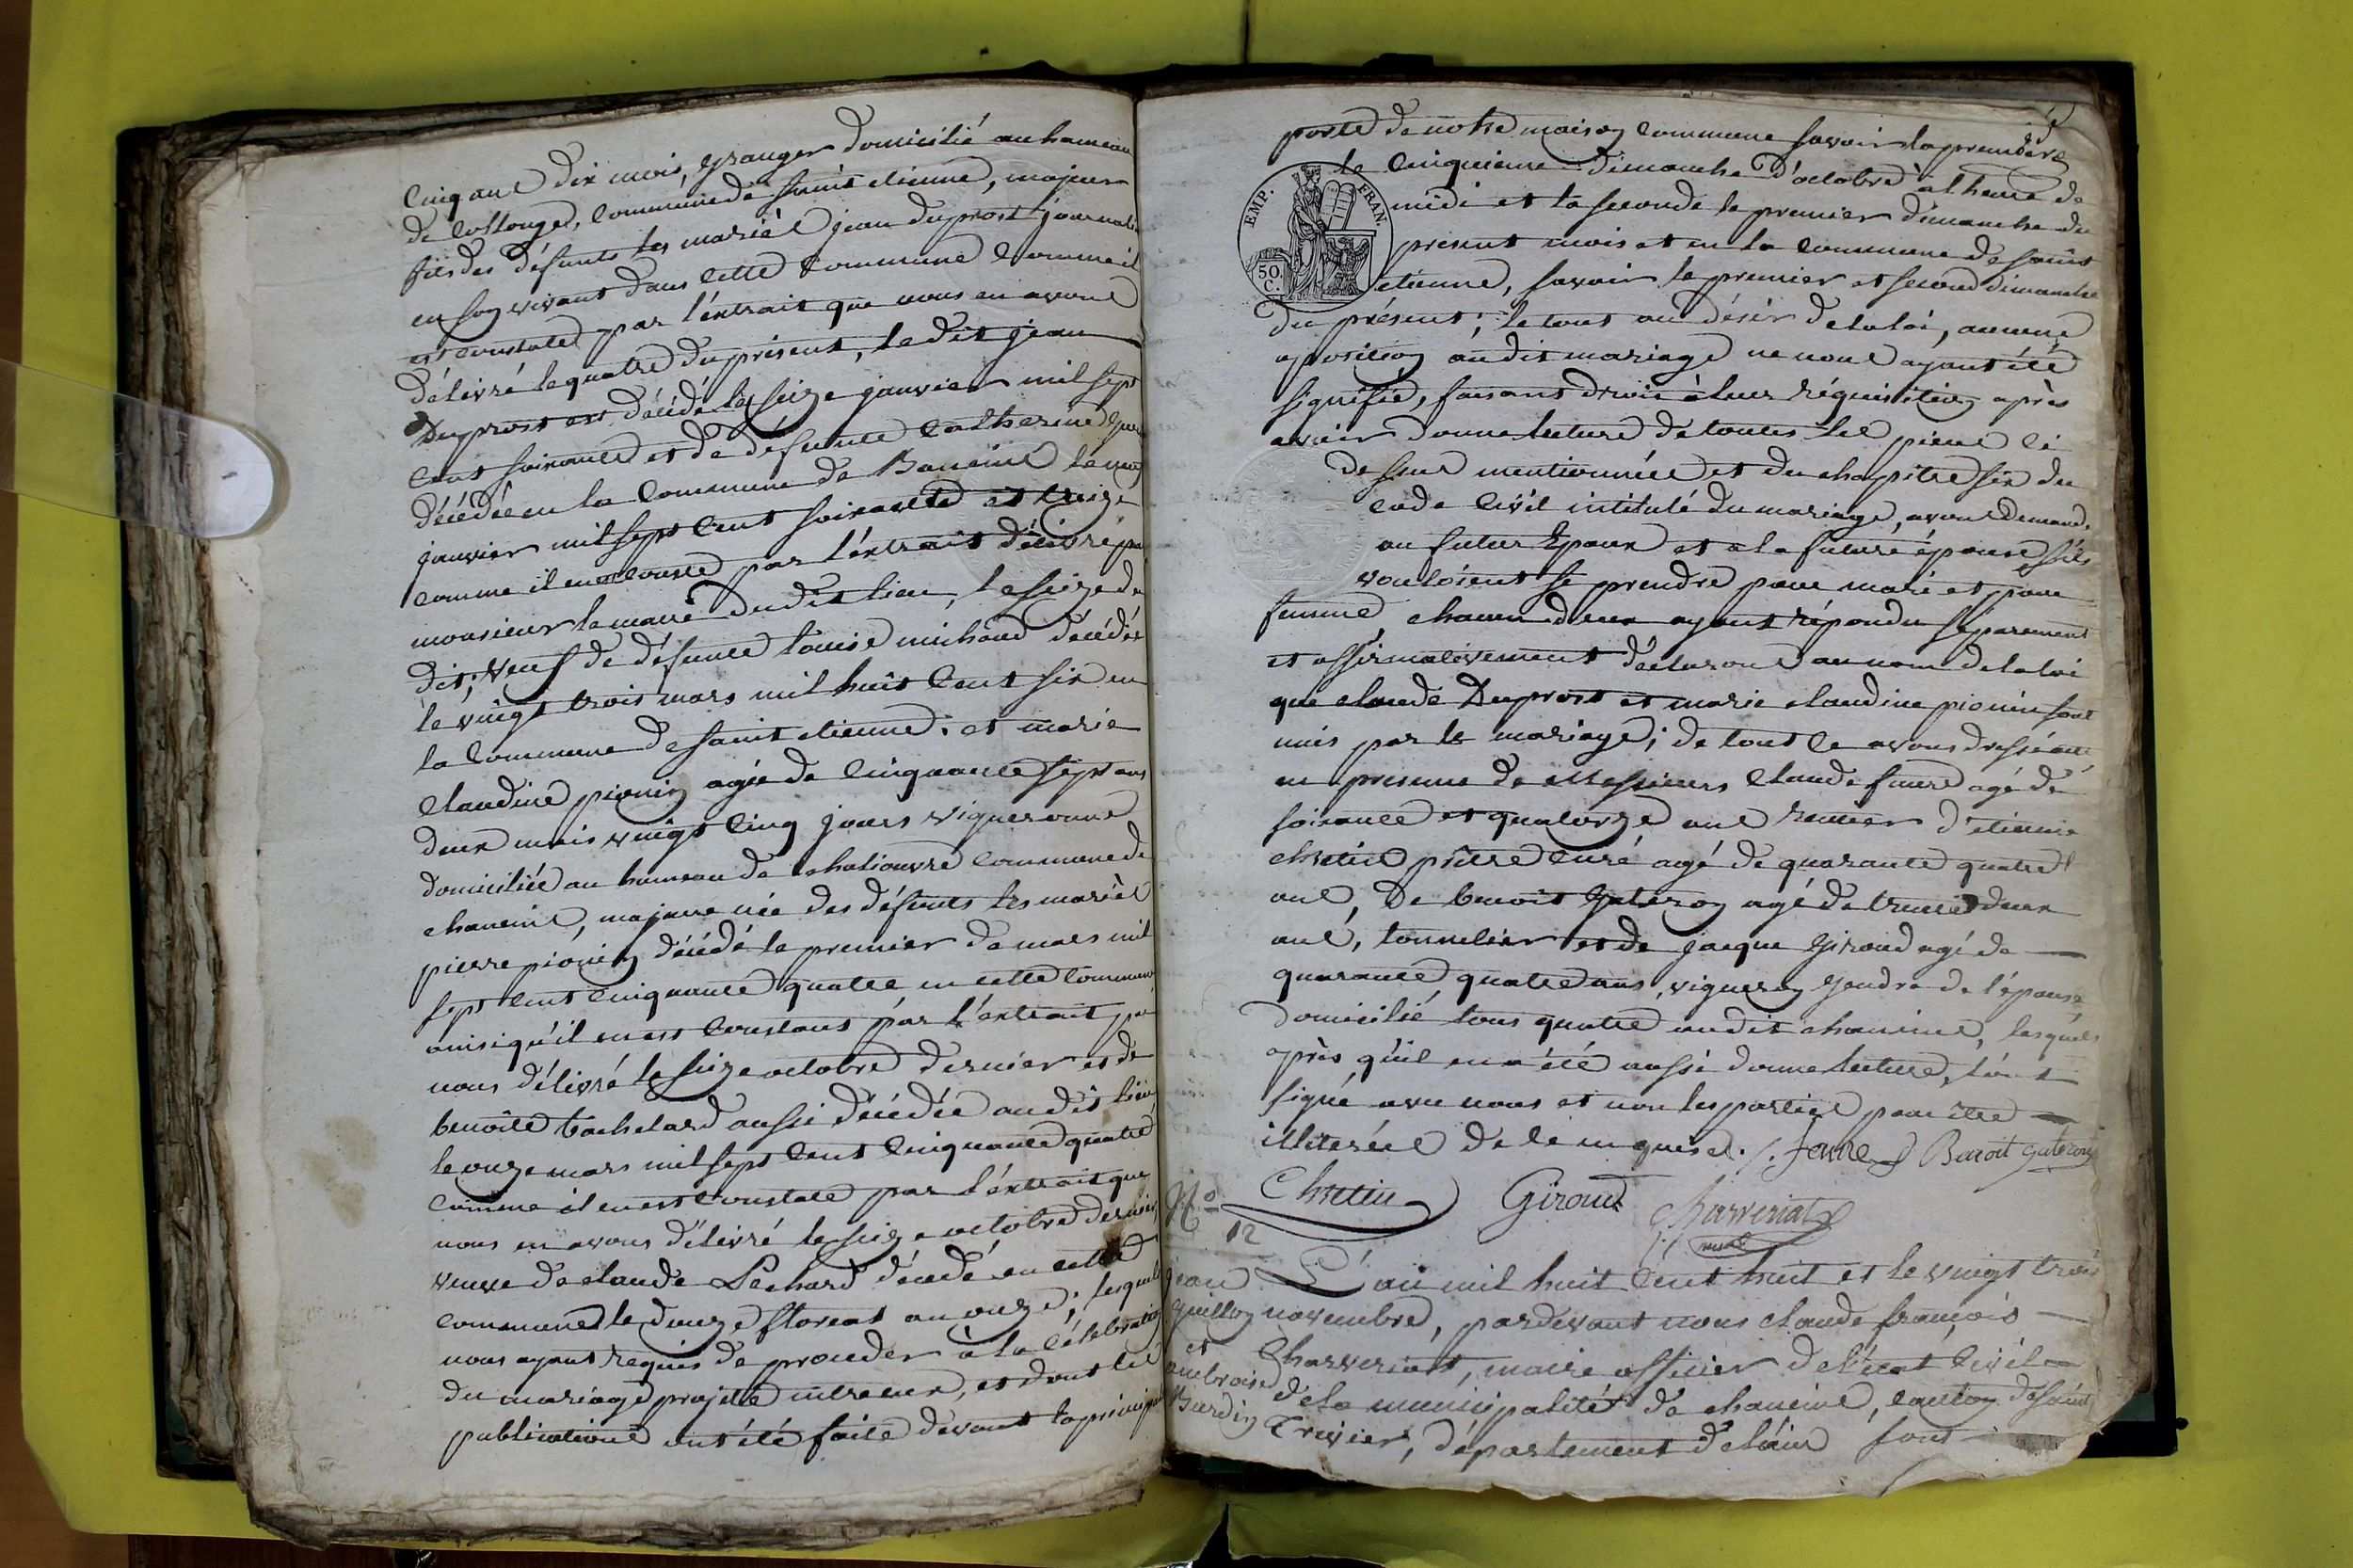 cinq ans dix mois, granger domicilié au hameau
de collonges, commune de saint etienne, majeur
fils des défunts les mariés jean duprost journalier
en son vivant dans cette commune comme il
est constaté par l'extrait que nous en avons
délivré le quatre du présent, le dit jean
Duprost est décédé le seize janvier mil sept
cent soixante et de défunte Catherine
décédée en la commune de Baneins le
janvier mil sept cent soixante et treize
comme il en conste par l'extrait délivré par
monsieur le maire dudit lieu, le seize du
dit; veuf de défunte louise michaud décédée
le vingt trois mars mil huit cent six en
la commune de saint etienne; et marie
claudine pionin agée de cinquante sept ans
deux mois vingt cinq jours vigneronne
domiciliée au hameau de chaliouvre commune de
chaneins, majeure née des défunts les mariés
pierre pionin décédé le premier de mars mil
sept cent cinquante quatre en cette commune
ainsi qu'il en est constant par l'extrait par
nous délivré le seize octobre dernier et de
benoite bachelard aussi décédée audit lieu
le onze mars mil sept cent cinquante quatre
comme il en est constaté par l'extrait que
nous en avons délivré le seize octobre dernier
veuve de claude Lechard décédé en cette
commune le douze floreal an onze; lesquels
nous ayant requis de proceder à la célébration
du mariage projetté entre eux, et dont les
publications ont été faites devant la principale
porte de notre maison commune savoir la premiere
le cinquieme dimanche d'octobre à l'heure de
midi et la seconde le premier dimanche du
present mois et en la commune de saint
etienne, savoir le premier et second dimanche
EMP. FRAN.
50.
C.
du présent; le tout au désir de la loi, aucune
oposition audit mariage ne nous ayant été
signifiée, faisant droit à leur réquisition après
avoir donné lecture de toutes les pieces ci
dessus mentionnées et du chapitre six du
code civil intitulé du mariage, avons demandé
au futur époux et a la future épouse s'ils
vouloient se prendre pour mari et pour
femme chacun deux ayant répondu séparement
et affirmativement déclarons au nom de la loi
que claude Duprost et marie claudine pionin sont
unis par le mariage; de tout ce avons dressé acte
en presence de Messieurs Claude faure agé de
soixante et quatorze ans rentier d'etienne
chretin prêtre curé agé de quarante quatre
ans, De benoit gateron agé de trente deux
ans, tonnelier et de jacque giroud agé de
quarante quatre ans, vigneron gendre de l'épouse,
domicilié tous quatre audit chaneins, lesquels
après qu'il en a été aussi donné lecture, l'ont
signé avec nous et non les parties pour être
illiterées de ce enquises. faure Benoit gateron
Chretin Giroud Charveriat
maire
N.o
12
jean
guillon
et
ambroise
Burdin
L'an mil huit cent huit et le vingt trois
novembre, pardevant nous claude françois
Charveriat, maire officier de l'état civil
de la municipalité de chaneins, canton de saint
Trivier, département de l'ain sont